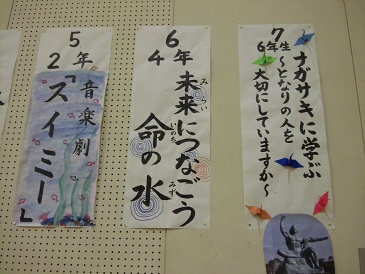 7
6年生
ナガサキに学ぶ
～となりの人を
大切にしていますか～
6
4年
未来につなごう
みらい
命の水
いのち
みず
5
2年
音楽劇
「スイミー」